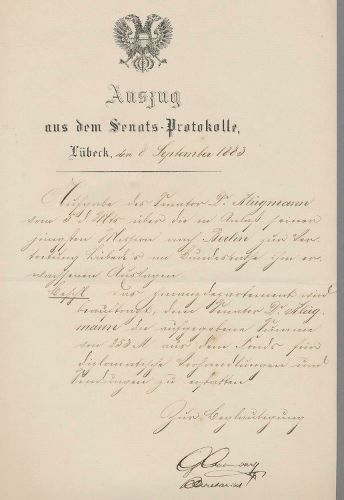 Auszug
aus dem Senats-Protokolle,
Lübeck, den 8 September 1883
Aufgabe des Senator Dr. Klügmann
vom 5 d Mts über die in Anlaß seiner
jüngsten Mission nach Berlin zur Ver-
tretung Lübecks im Bundesrathe ihm er-
wachsenen Auslagen.
Beschl. Das Finanzdepartement wird
beauftragt, dem Senator Dr. Klüg-
mann die aufgegebene Summe
von 253 M aus dem Fonds für
diplomatische Verhandlungen und
Sendungen zu erstatten
Zur Beglaubigung
Secretarius